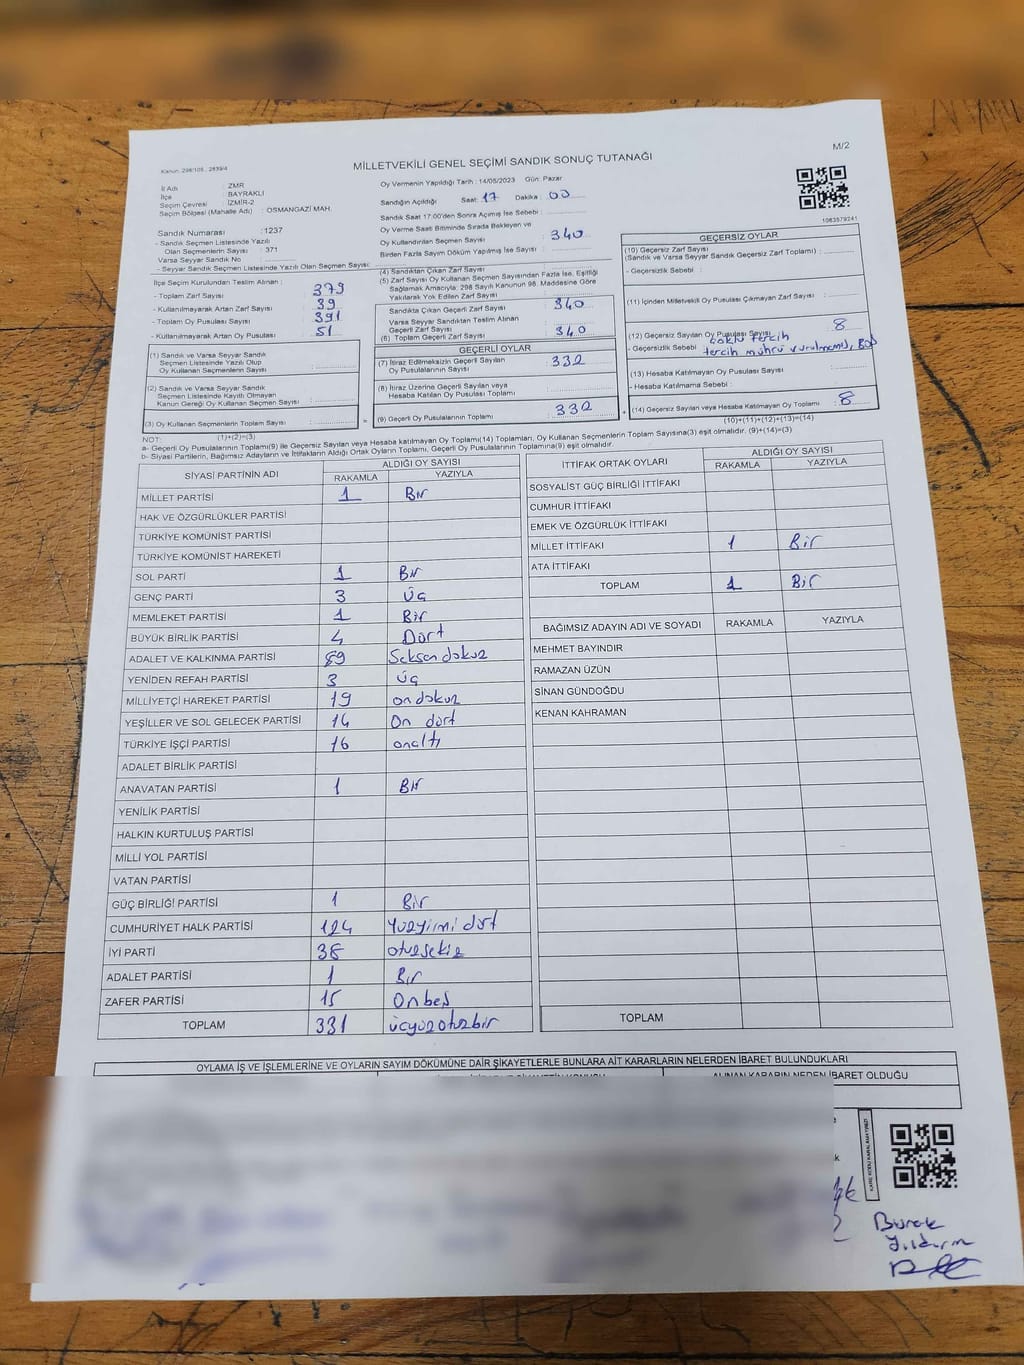 M/2
Kanun: 298/105 , 2839/4
MİLLETVEKİLİ GENEL SEÇİMİ SANDIK SONUÇ TUTANAĞI
İl Adı : ZMR
İlçe : BAYRAKLI
Seçim Çevresi : İZMİR-2
Seçim Bölgesi (Mahalle Adı) : OSMANGAZİ MAH.
Sandık Numarası :1237
- Sandık Seçmen Listesinde Yazılı
Olan Seçmenlerin Sayısı : 371
Varsa Seyyar Sandık No :
- Seyyar Sandık Seçmen Listesinde Yazılı Olan Seçmen Sayısı:
Oy Vermenin Yapıldığı Tarih : 14/05/2023 Gün: Pazar
Sandığın Açıldığı Saat: 17 Dakika : 00
Sandık Saat 17:00'den Sonra Açılmış İse Sebebi :
Oy Verme Saati Bitiminde Sırada Bekleyen ve
Oy Kullandırılan Seçmen Sayısı : 340
Birden Fazla Sayım Döküm Yapılmış İse Sayısı :
1063579241
İlçe Seçim Kurulundan Teslim Alınan :
- Toplam Zarf Sayısı : 379
- Kullanılmayarak Artan Zarf Sayısı : 39
- Toplam Oy Pusulası Sayısı : 391
- Kullanılmayarak Artan Oy Pusulası : 51
(1) Sandık ve Varsa Seyyar Sandık
Seçmen Listesinde Yazılı Olup
Oy Kullanan Seçmenlerin Sayısı :
(2) Sandık ve Varsa Seyyar Sandık
Seçmen Listesinde Kayıtlı Olmayan
Kanun Gereği Oy Kullanan Seçmen Sayısı :
(3) Oy Kullanan Seçmenlerin Toplam Sayısı :
(1)+(2)=(3)
(4) Sandıktan Çıkan Zarf Sayısı
(5) Zarf Sayısı Oy Kullanan Seçmen Sayısından Fazla İse, Eşitliği
Sağlamak Amacıyla; 298 Sayılı Kanunun 98. Maddesine Göre
Yakılarak Yok Edilen Zarf Sayısı :
Sandıkta Çıkan Geçerli Zarf Sayısı : 340
Varsa Seyyar Sandıktan Teslim Alınan
Geçerli Zarf Sayısı :
(6) Toplam Geçerli Zarf Sayısı : 340
GEÇERLİ OYLAR
(7) İtiraz Edilmeksizin Geçerli Sayılan
Oy Pusulalarının Sayısı : 332
(8) İtiraz Üzerine Geçerli Sayılan veya
Hesaba Katılan Oy Pusulaları Toplamı :
= (9) Geçerli Oy Pusulalarının Toplamı : 332
GEÇERSİZ OYLAR
(10) Geçersiz Zarf Sayısı
(Sandık ve Varsa Seyyar Sandık Geçersiz Zarf Toplamı) :
- Geçersizlik Sebebi :
(11) İçinden Milletvekili Oy Pusulası Çıkmayan Zarf Sayısı :
(12) Geçersiz Sayılan Oy Pusulası Sayısı : 8
- Geçersizlik Sebebi : çoklu Tercih
tercih mührü vurulmamış, Boş
(13) Hesaba Katılmayan Oy Pusulası Sayısı :
- Hesaba Katılmama Sebebi :
+ (14) Geçersiz Sayılan veya Hesaba Katılmayan Oy Toplamı : 8
(10)+(11)+(12)+(13)=(14)
NOT:
a- Geçerli Oy Pusulaları Toplamı(9) ile Geçersiz Sayılan veya Hesaba katılmayan Oy Toplamı(14) Toplamları, Oy Kullanan Seçmenlerin Toplam Sayısına(3) eşit olmalıdır. (9)+(14)=(3)
b- Siyasi Partilerin, Bağımsız Adayların ve İttifakların Aldığı Ortak Oyların Toplamı, Geçerli Oy Pusulalarının Toplamına(9) eşit olmalıdır.
SİYASİ PARTİNİN ADI ALDIĞI OY SAYISI
RAKAMLA YAZIYLA
MİLLET PARTİSİ 1 Bir
HAK VE ÖZGÜRLÜKLER PARTİSİ
TÜRKİYE KOMÜNİST PARTİSİ
TÜRKİYE KOMÜNİST HAREKETİ
SOL PARTİ 1 Bir
GENÇ PARTİ 3 üç
MEMLEKET PARTİSİ 1 Bir
BÜYÜK BİRLİK PARTİSİ 4 Dört
ADALET VE KALKINMA PARTİSİ 89 Seksen dokuz
YENİDEN REFAH PARTİSİ 3 üç
MİLLİYETÇİ HAREKET PARTİSİ 19 on dokuz
YEŞİLLER VE SOL GELECEK PARTİSİ 14 On dört
TÜRKİYE İŞÇİ PARTİSİ 16 onaltı
ADALET BİRLİK PARTİSİ
ANAVATAN PARTİSİ 1 Bir
YENİLİK PARTİSİ
HALKIN KURTULUŞ PARTİSİ
MİLLİ YOL PARTİSİ
VATAN PARTİSİ
GÜÇ BİRLİĞİ PARTİSİ 1 Bir
CUMHURİYET HALK PARTİSİ 124 Yüzyirmi dört
İYİ PARTİ 38 otuzsekiz
ADALET PARTİSİ 1 Bir
ZAFER PARTİSİ 15 Onbeş
TOPLAM 331 üçyüzotuzbir
İTTİFAK ORTAK OYLARI ALDIĞI OY SAYISI
RAKAMLA YAZIYLA
SOSYALİST GÜÇ BİRLİĞİ İTTİFAKI
CUMHUR İTTİFAKI
EMEK VE ÖZGÜRLÜK İTTİFAKI
MİLLET İTTİFAKI 1 Bir
ATA İTTİFAKI
TOPLAM 1 Bir
BAĞIMSIZ ADAYIN ADI VE SOYADI RAKAMLA YAZIYLA
MEHMET BAYINDIR
RAMAZAN ÜZÜN
SİNAN GÜNDOĞDU
KENAN KAHRAMAN
TOPLAM
OYLAMA İŞ VE İŞLEMLERİNE VE OYLARIN SAYIM DÖKÜMÜNE DAİR ŞİKAYETLERLE BUNLARA AİT KARARLARIN NELERDEN İBARET BULUNDUKLARI
ALINAN KARARIN NEDEN İBARET OLDUĞU
KARE KODU KARALAMAYINIZ!
Burak
Yıldırım